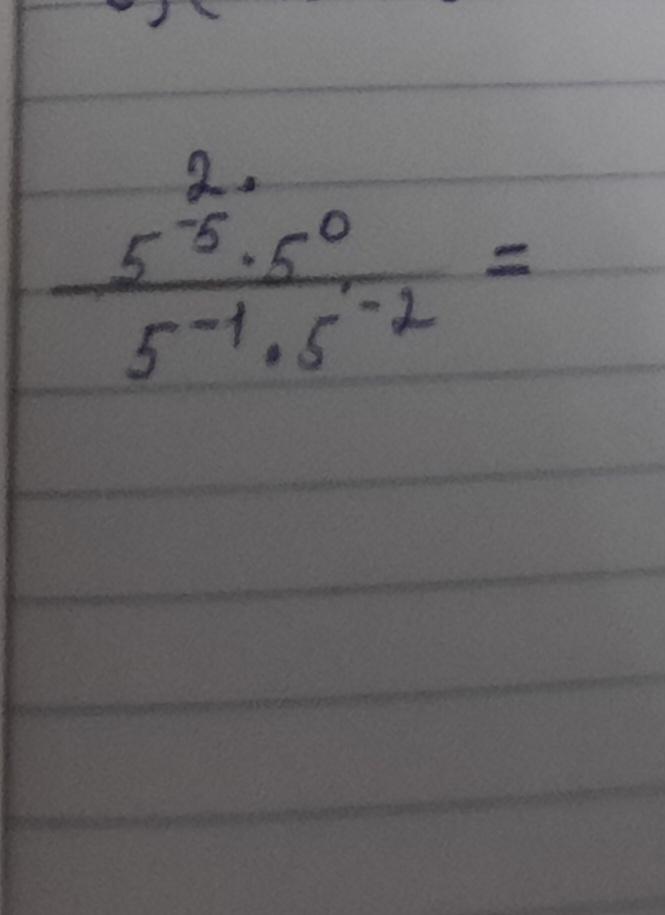 2.
5⁻⁵ · 5⁰
5⁻¹ · 5⁻² =